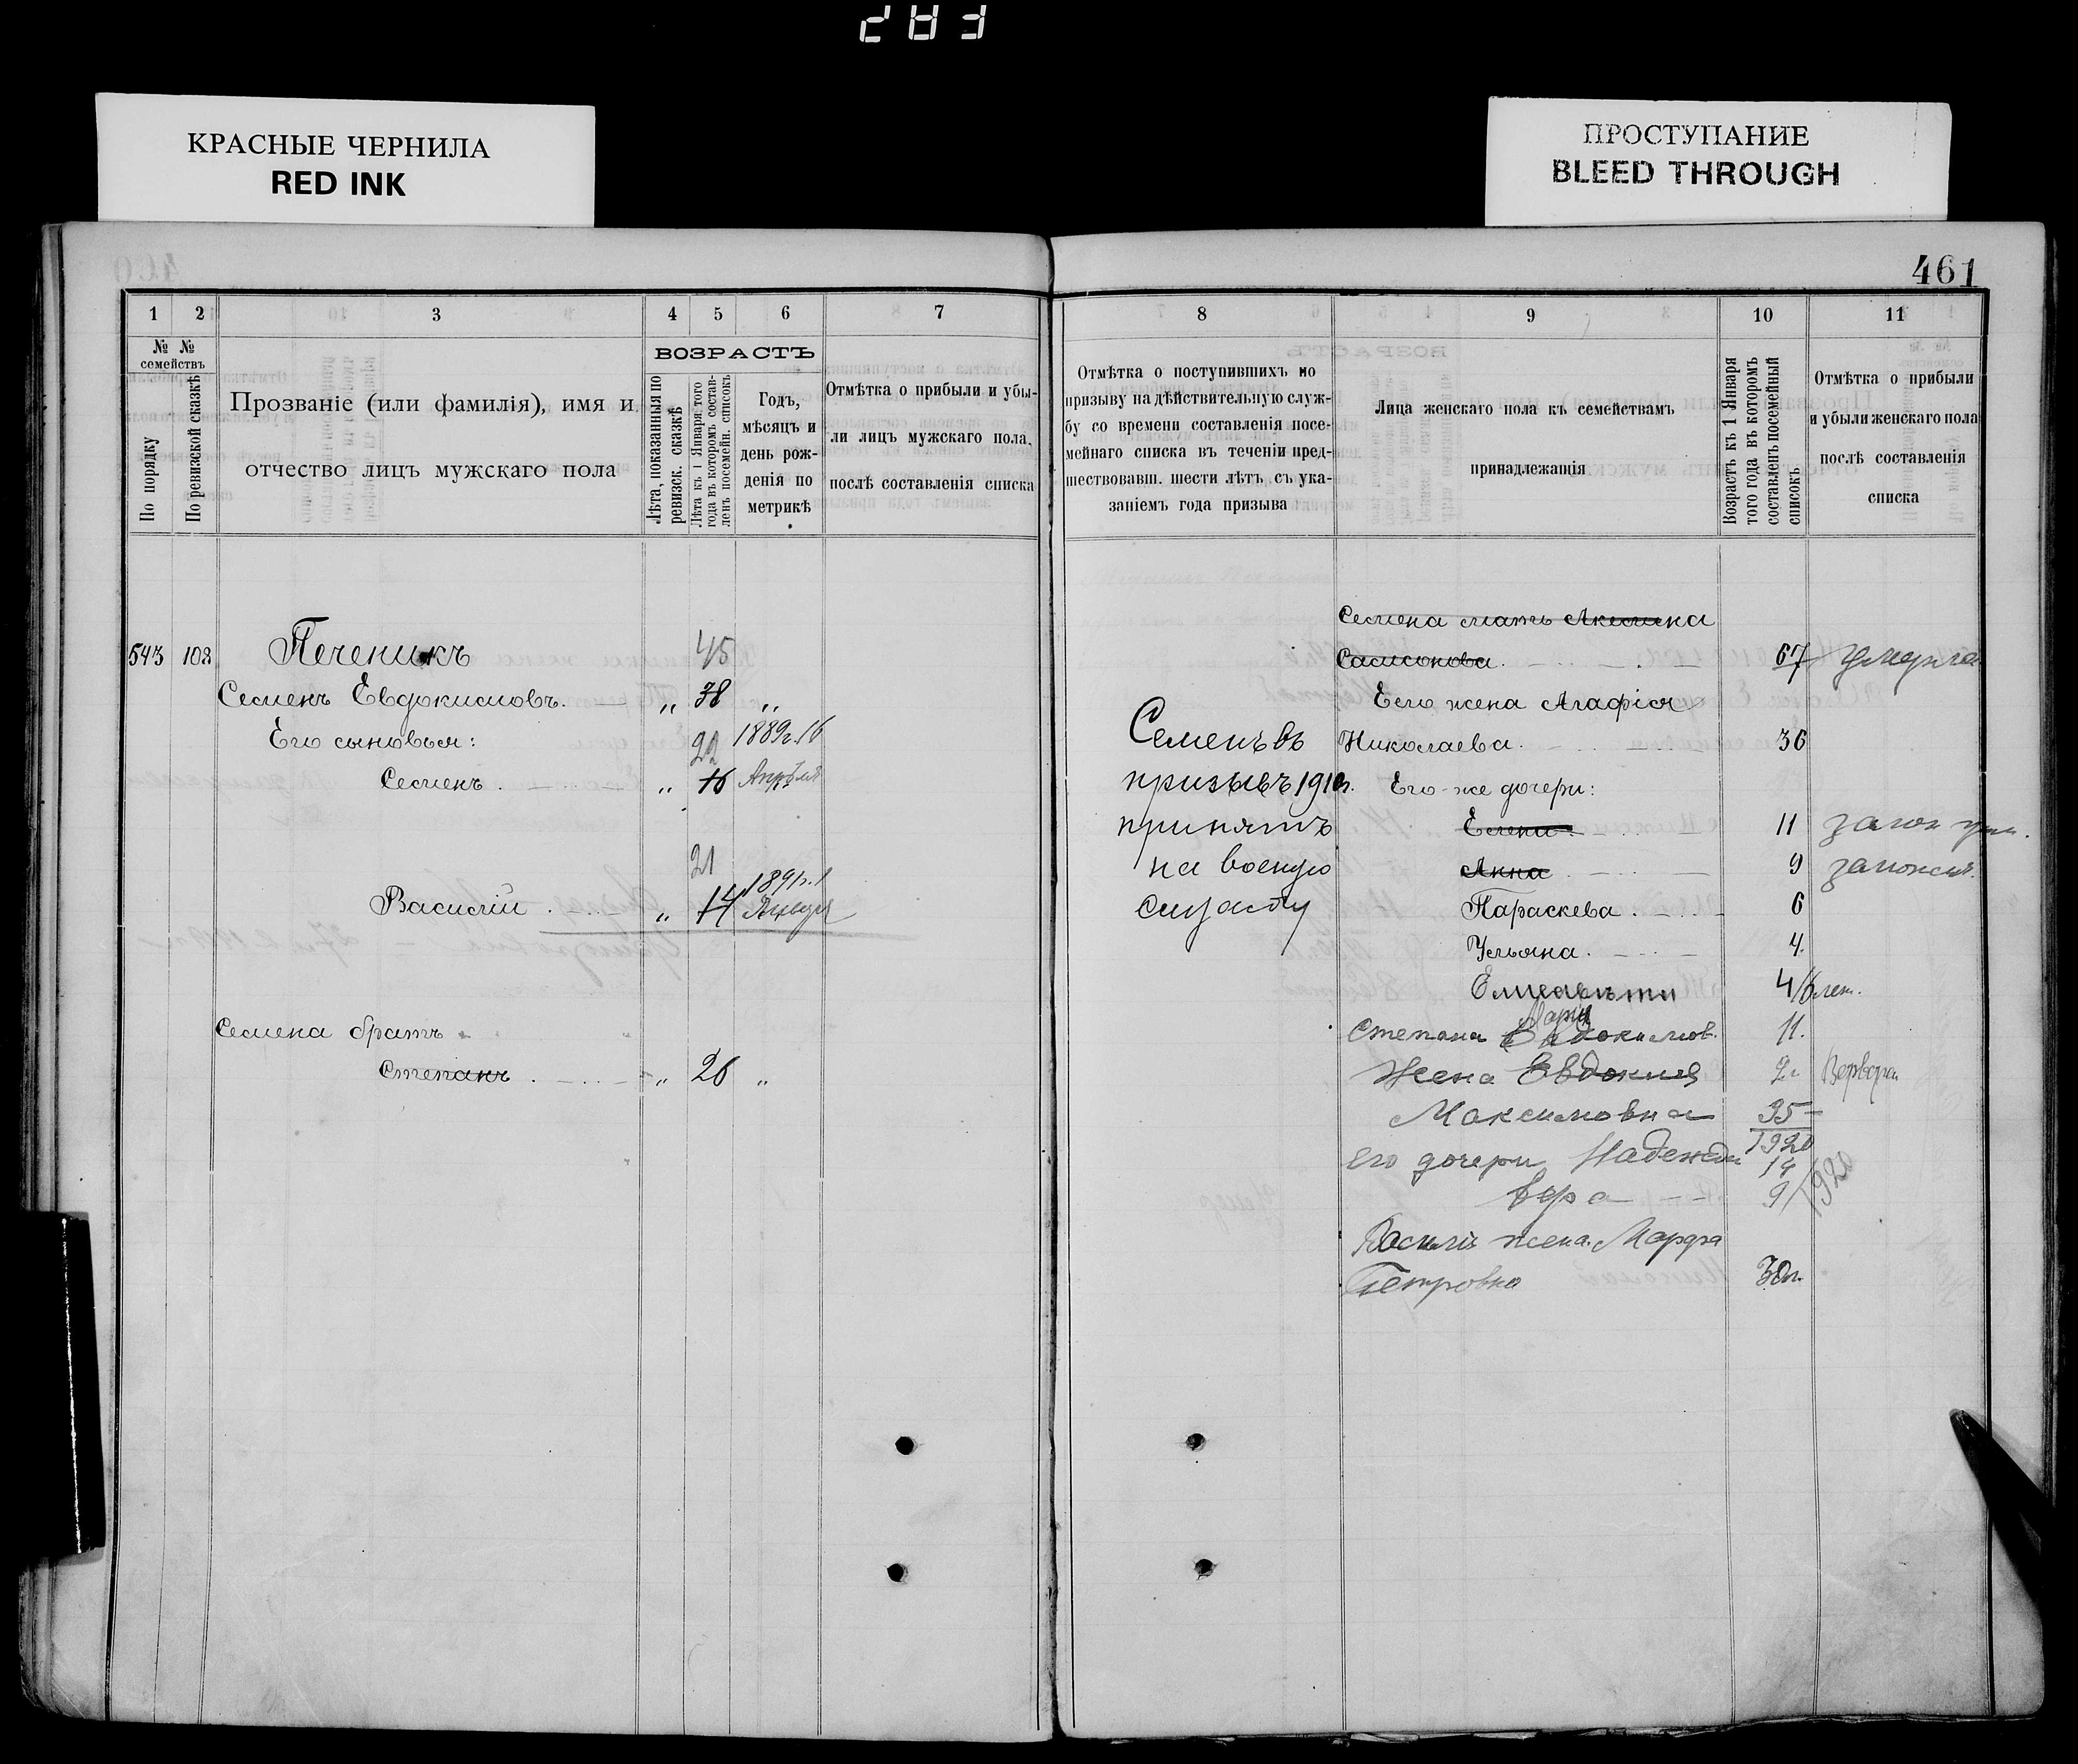 283
КРАСНЫЕ ЧЕРНИЛА
RED INK
ПРОСТУПАНИЕ
BLEED THROUGH
461
1 2 3 4 5 6 7
№ № семействъ
По порядку
По ревизской сказкѣ
Прозваніе (или фамилія), имя и
отчество лицъ мужскаго пола
ВОЗРАСТЪ
Лѣта, показанныя по
ревизск. сказкѣ
Лѣта къ 1 Января того
года въ которомъ состав-
ленъ посемейн. списокъ
Годъ,
мѣсяцъ и
день рож-
денія по
метрикѣ
Отмѣтка о прибыли и убы-
ли лицъ мужскаго пола,
послѣ составленія списка
543 108 Печеникъ 45
Семенъ Евдокимовъ. „ 38 „
Его сыновья: 22 1889г. 16
Семенъ „ 16 Апрѣля
21
1891г. 1
Василій „ 14 Января
Семена братъ
Степанъ „ 26 „
8 9 10 11
Отмѣтка о поступившихъ по
призыву на дѣйствительную служ-
бу со времени составленія посе-
мейнаго списка въ теченіи пред-
шествовавш. шести лѣтъ съ ука-
заніемъ года призыва
Лица женскаго пола къ семействамъ
принадлежащія
Возрастъ къ 1 Января
того года въ которомъ
составленъ посемейный
списокъ
Отмѣтка о прибыли
и убыли женскаго пола
послѣ составленія
списка
Семенъ въ
призывъ 1910г.
принятъ
на военую
Семена мать Акилина
Самсонова 67 умерла
Его жена Агафія
Николаева 36
Его-же дочери:
Елена 11
Анна 9
Параскева 6
Ульяна 4
Елисавета 4
Марія
Степана Евдокимов. 11.
Жена Евдокия
Максимовна 35
1920
Его дочери Надежда 14
Вера 9 1920
Василія жена Марфа
Петровна 30л.